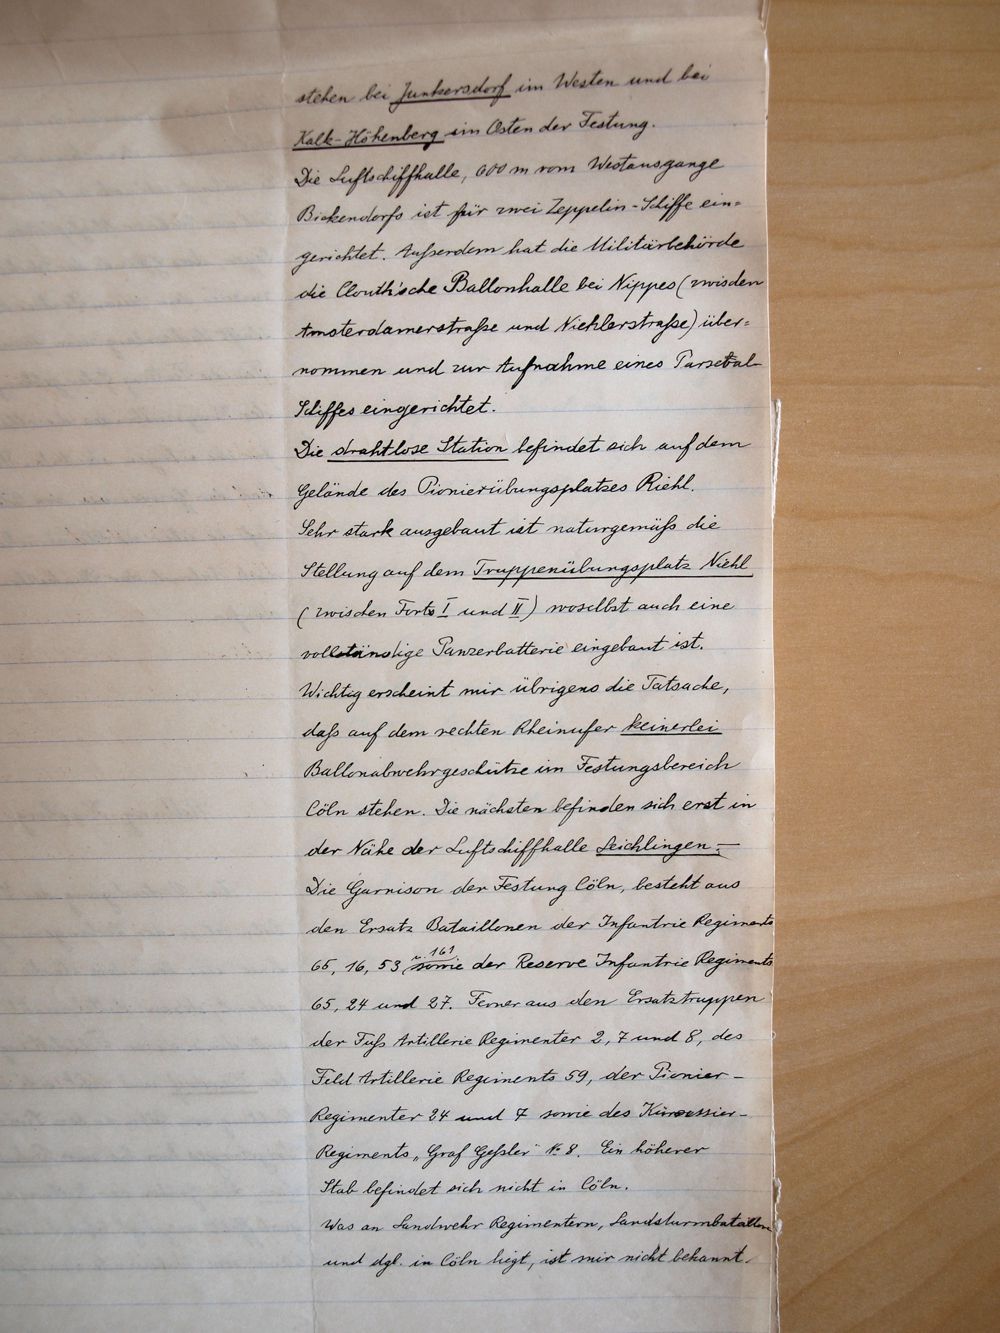 stehen bei Junkersdorf im Westen und bei
Kalk-Höhenberg im Osten der Festung.
Die Luftschiffhalle, 600 m vom Westausgange
Bickendorfs ist für zwei Zeppelin-Schiffe ein=
gerichtet. Außerdem hat die Militärbehörde
die Clouth'sche Ballonhalle bei Nippes (zwisden
Amsterdamerstraße und Niehlerstraße) über=
nommen und zur Aufnahme eines Parseval-
Schiffes eingerichtet.
Die drahtlose Station befindet sich auf dem
Gelände des Pionierübungsplatzes Riehl.
Sehr stark ausgebaut ist naturgemäß die
Stellung auf dem Truppenübungsplatz Niehl
(zwischen Forts I und II) woselbst auch eine
vollständige Panzerbatterie eingebaut ist.
Wichtig erscheint mir übrigens die Tatsache,
daß auf dem rechten Rheinufer keinerlei
Ballonabwehrgeschütze im Festungsbereich
Cöln stehen. Die nächsten befinden sich erst in
der Nähe der Luftschiffhalle Leichlingen.–
Die Garnison der Festung Cöln, besteht aus
den Ersatz Bataillonen der Infantrie Regiments
65, 16, 53 u. 161 sowie der Reserve Infantrie Regiments
65, 24 und 27. Ferner aus den Ersatztruppen
der Fuß Artillerie Regimenter 2, 7 und 8, des
Feld Artillerie Regiments 59, der Pionier-
Regimenter 24 und 7 sowie des Kürassier-
Regiments „Graf Geßler" No 8. Ein höherer
Stab befindet sich nicht in Cöln.
Was an Landwehr Regimentern, Landsturmbataillone
und dgl. in Cöln liegt, ist mir nicht bekannt.